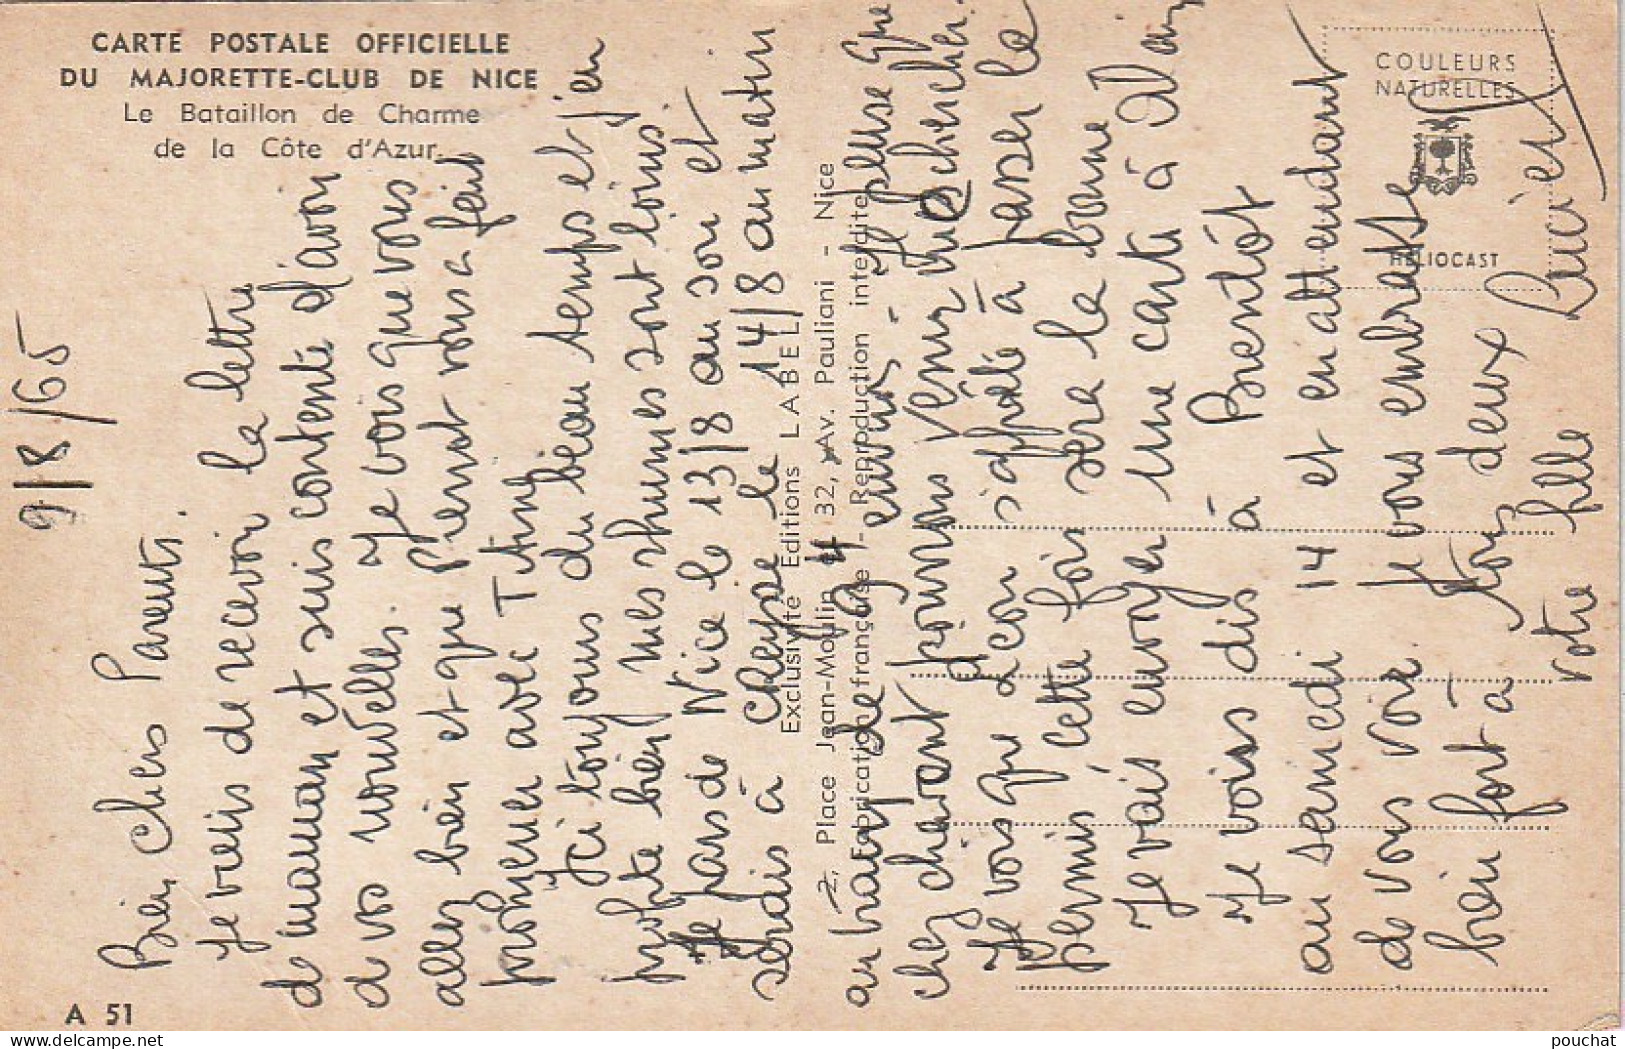 CARTE POSTALE OFFICIELLE
DU MAJORETTE-CLUB DE NICE
Le Bataillon de Charme
de la Côte d'Azur
COULEURS
NATURELLES
HELIOCAST
9/8/65
Bien chers Parents.
Je viens de recevoir la lettre
de maman et suis contente d'avoir
de vos nouvelles. Je vois que vous
allez bien et que Pierrot vous a fait
promener avec Tine
Ici toujours du beau temps et j'en
profite bien mes rhumes sont loins
Je pars de Nice le 13/8 au soir et
serais à Cheyse le 14/8 au matin
au train de 9 4 environ. Je pense que
chez chavant pourrons venir me chercher.
Je vois que Léon s'apprête à passer le
permis cette fois sera la bonne
Je vais envoyer une carte à
Je vous dis à Bientôt
au samedi 14 et en attendant
de vous voir. Je vous embrasse
bien fort à tous deux
votre fille Lucien
Exclusivité Editions LABEL
2, Place Jean-Moulin - 32, Av. Pauliani - Nice
Fabrication française - Reproduction interdite
A 51
pouchat